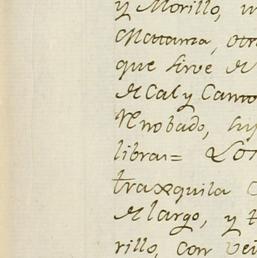 y Morillo, u
Mattanza, otra
que sirve de
de Cal y Canto
Renobado, su
libras= Los
trasquila
de largo, y
rillo, con vei